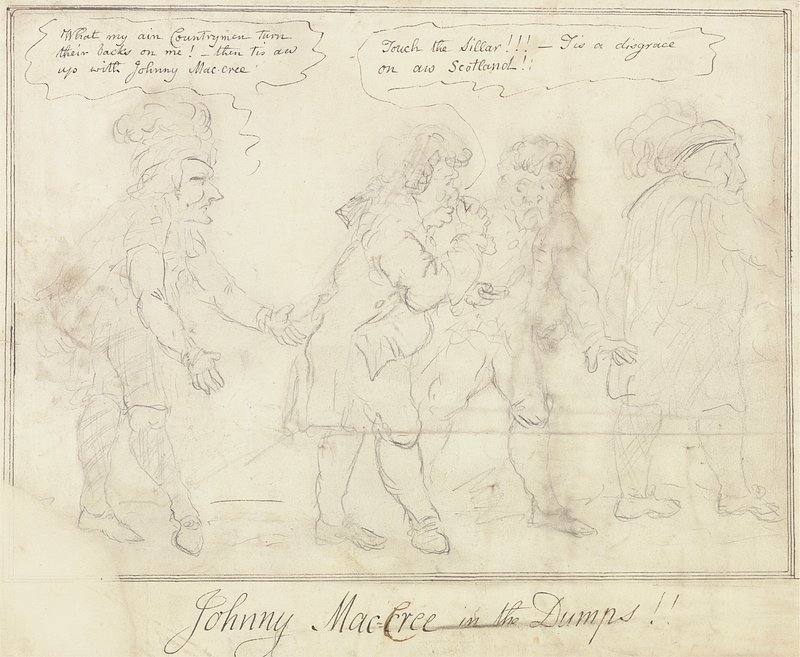 What my ain Countrymen turn
their backs on me! - then tis aw
up with Johnny Mac-cree!
Touch the Sillar!!! - Tis a disgrace
on aw Scotland!!
Johnny Mac-Cree in the Dumps!!